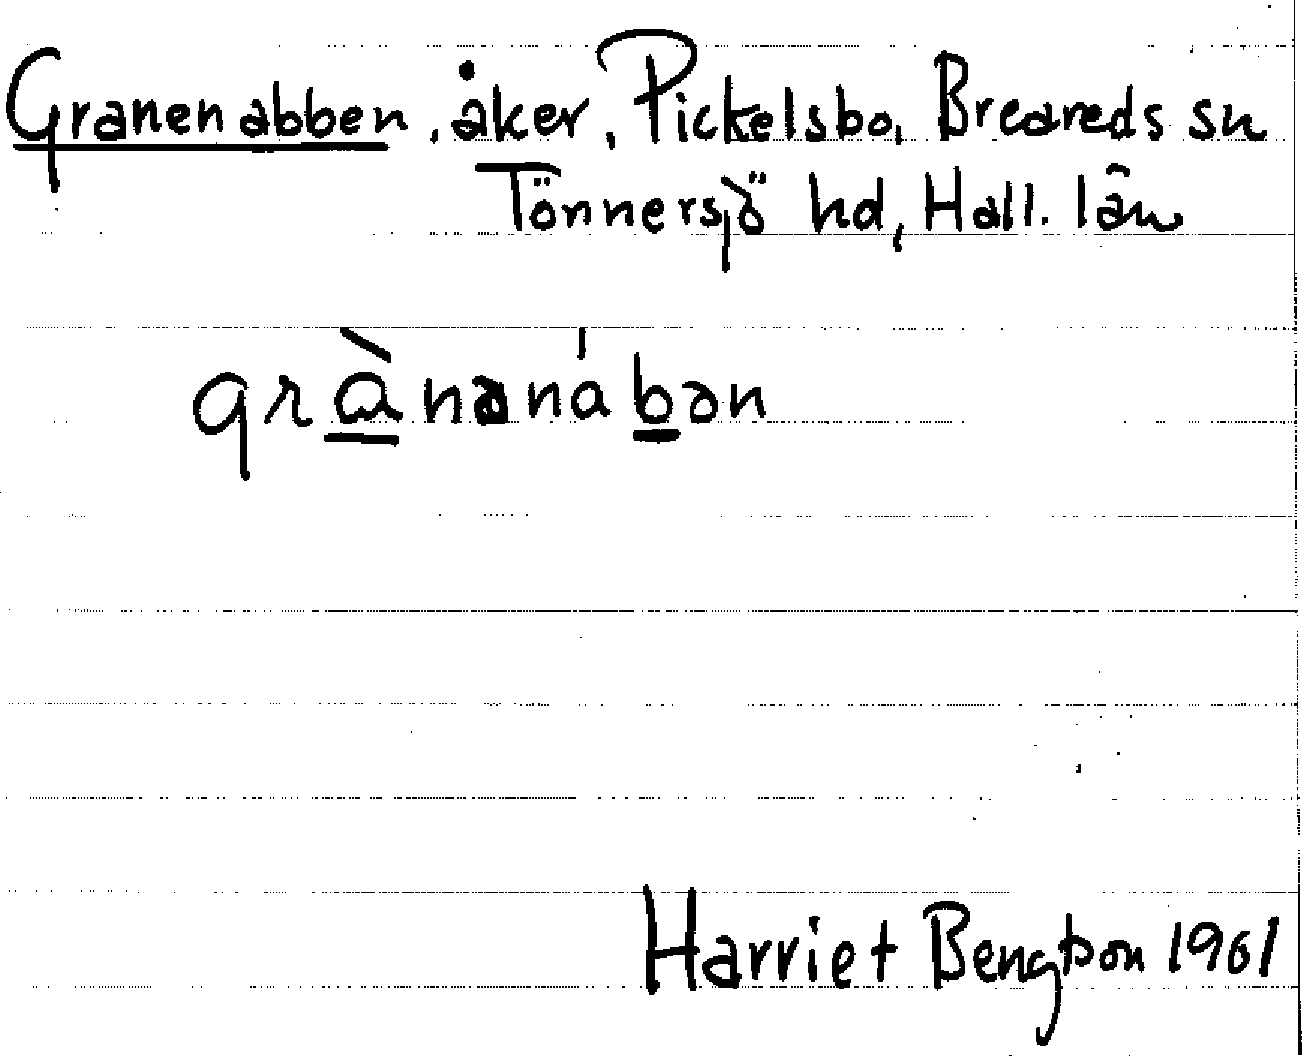 Granenabben, åker, Pickelsbo, Breareds sn
Tönnersjö hd, Hall. län
grà̱nənáḇən
Harriet Bengtson 1961